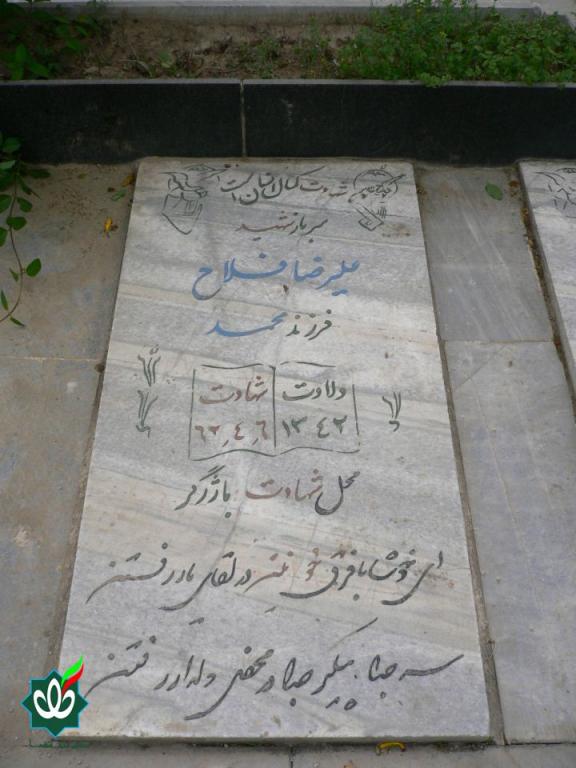 شهادت کمال انسان است
سرباز شهید
علیرضا فلاح
فرزند محمد
ولادت شهادت
۱۳۴۲ ۶۲٫۴٫۶
محل شهادت بازرگر
ای خوشا با فرق خونین در لقای یار رفتن
سر جدا پیکر جدا در محفل دلدار رفتن